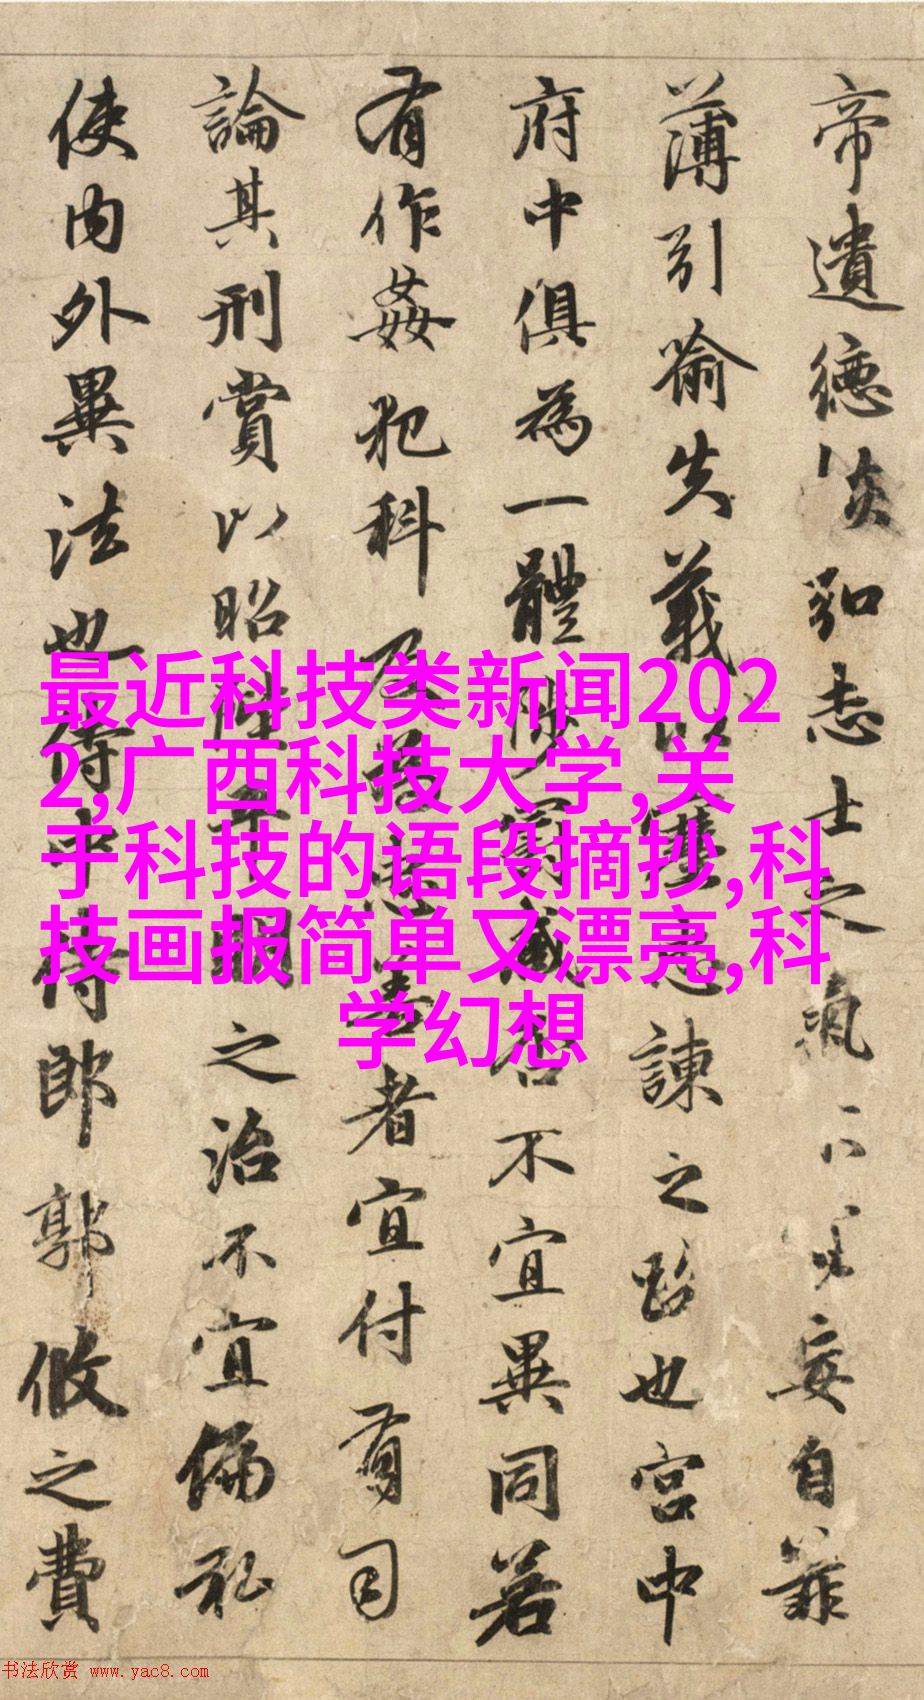 帝遺德恢弘志士之氣不宜妄自菲
薄引喻失義以塞忠諫之路也宮中
府中俱為一體陟罰臧否不宜異同若
有作姦犯科及為忠善者宜付有司
論其刑賞以昭陛下平明之治不宜偏私
使内外異法也侍中侍郎郭攸之費
最近科技类新闻202
2,广西科技大学,关
于科技的语段摘抄,科
技画报简单又漂亮,科
学幻想
书法欣赏 www.yac8.com